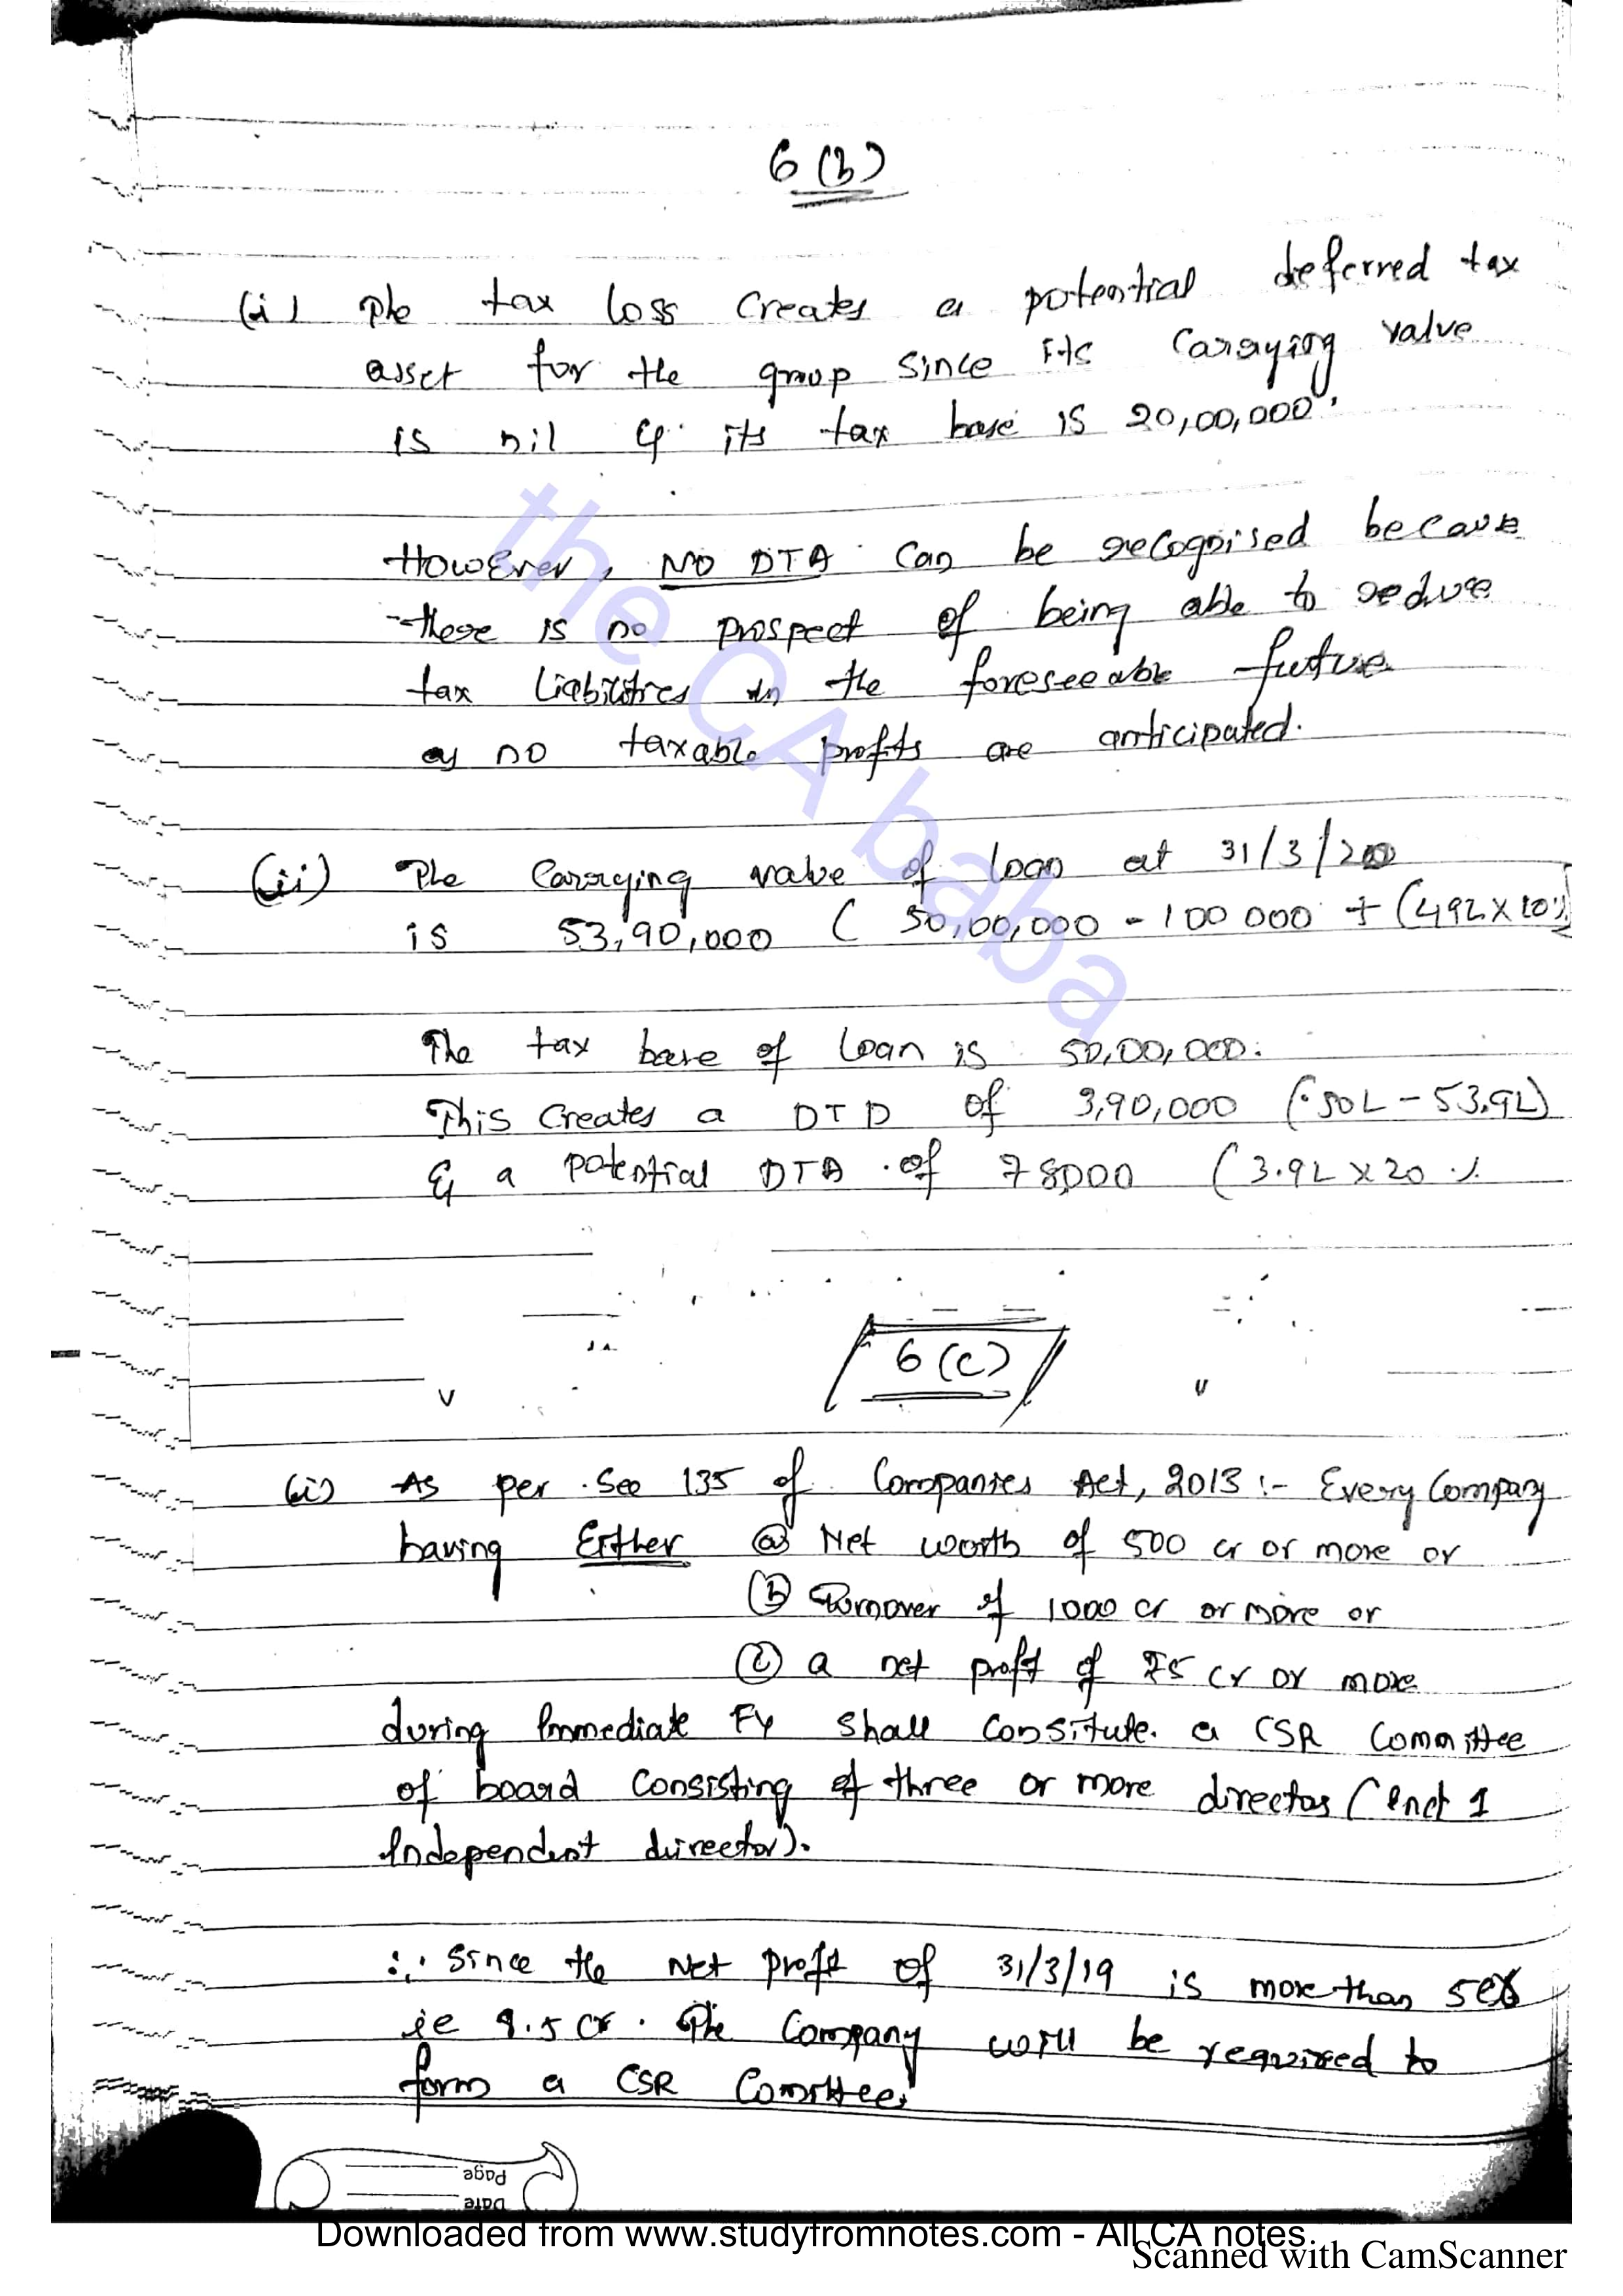 6 (b)
(i) The tax loss creates a potential deferred tax
asset for the group since its carrying value
is nil & its tax base is 20,00,000.
However, NO DTA can be recognised because
there is no prospect of being able to reduce
tax liabilities in the foreseeable future
as no taxable profits are anticipated.
(ii) The carrying value of loan at 31/3/20
is 53,90,000 ( 50,00,000 - 100 000 + (49L x 10%)
The tax base of loan is 50,00,000.
This creates a DTD of 3,90,000 (50L - 53.9L)
& a potential DTA of 78000 (3.9L x 20 %
6 (c)
(i) As per Sec 135 of Companies Act, 2013 :- Every Company
having Either (a) Net worth of 500 cr or more or
(b) Turnover of 1000 cr or more or
(c) a net profit of ₹5 cr or more
during Immediate FY shall consitute a CSR Committee
of board consisting of three or more directos (Incl 1
Independent director).
∴ Since the Net profit of 31/3/19 is more than 5cr
ie 8.5 cr. The Company will be required to
form a CSR Comittee.
Page
Date
the CA baba
Downloaded from www.studyfromnotes.com - All CA notes
Scanned with CamScanner